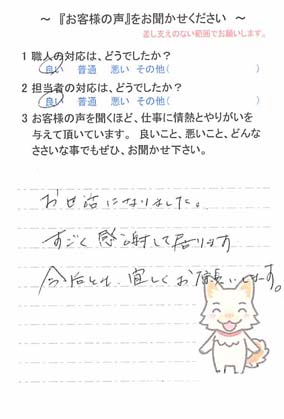 ～ 『お客様の声』をお聞かせください ～
差し支えのない範囲でお願いします。
1 職人の対応は、どうでしたか？
良い 普通 悪い その他( )
2 担当者の対応は、どうでしたか？
良い 普通 悪い その他( )
3 お客様の声を聞くほど、仕事に情熱とやりがいを
与えて頂いています。 良いこと、悪いこと、どんな
ささいな事でもぜひ、お聞かせ下さい。
お世話になりました。
すごく感謝して居ります
今后とも、宜しくお願いします。